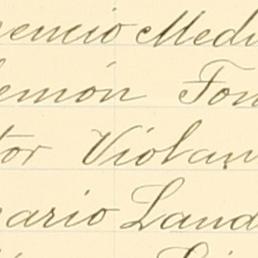 encio Medi
emón Fon
tor Violan
nario Land